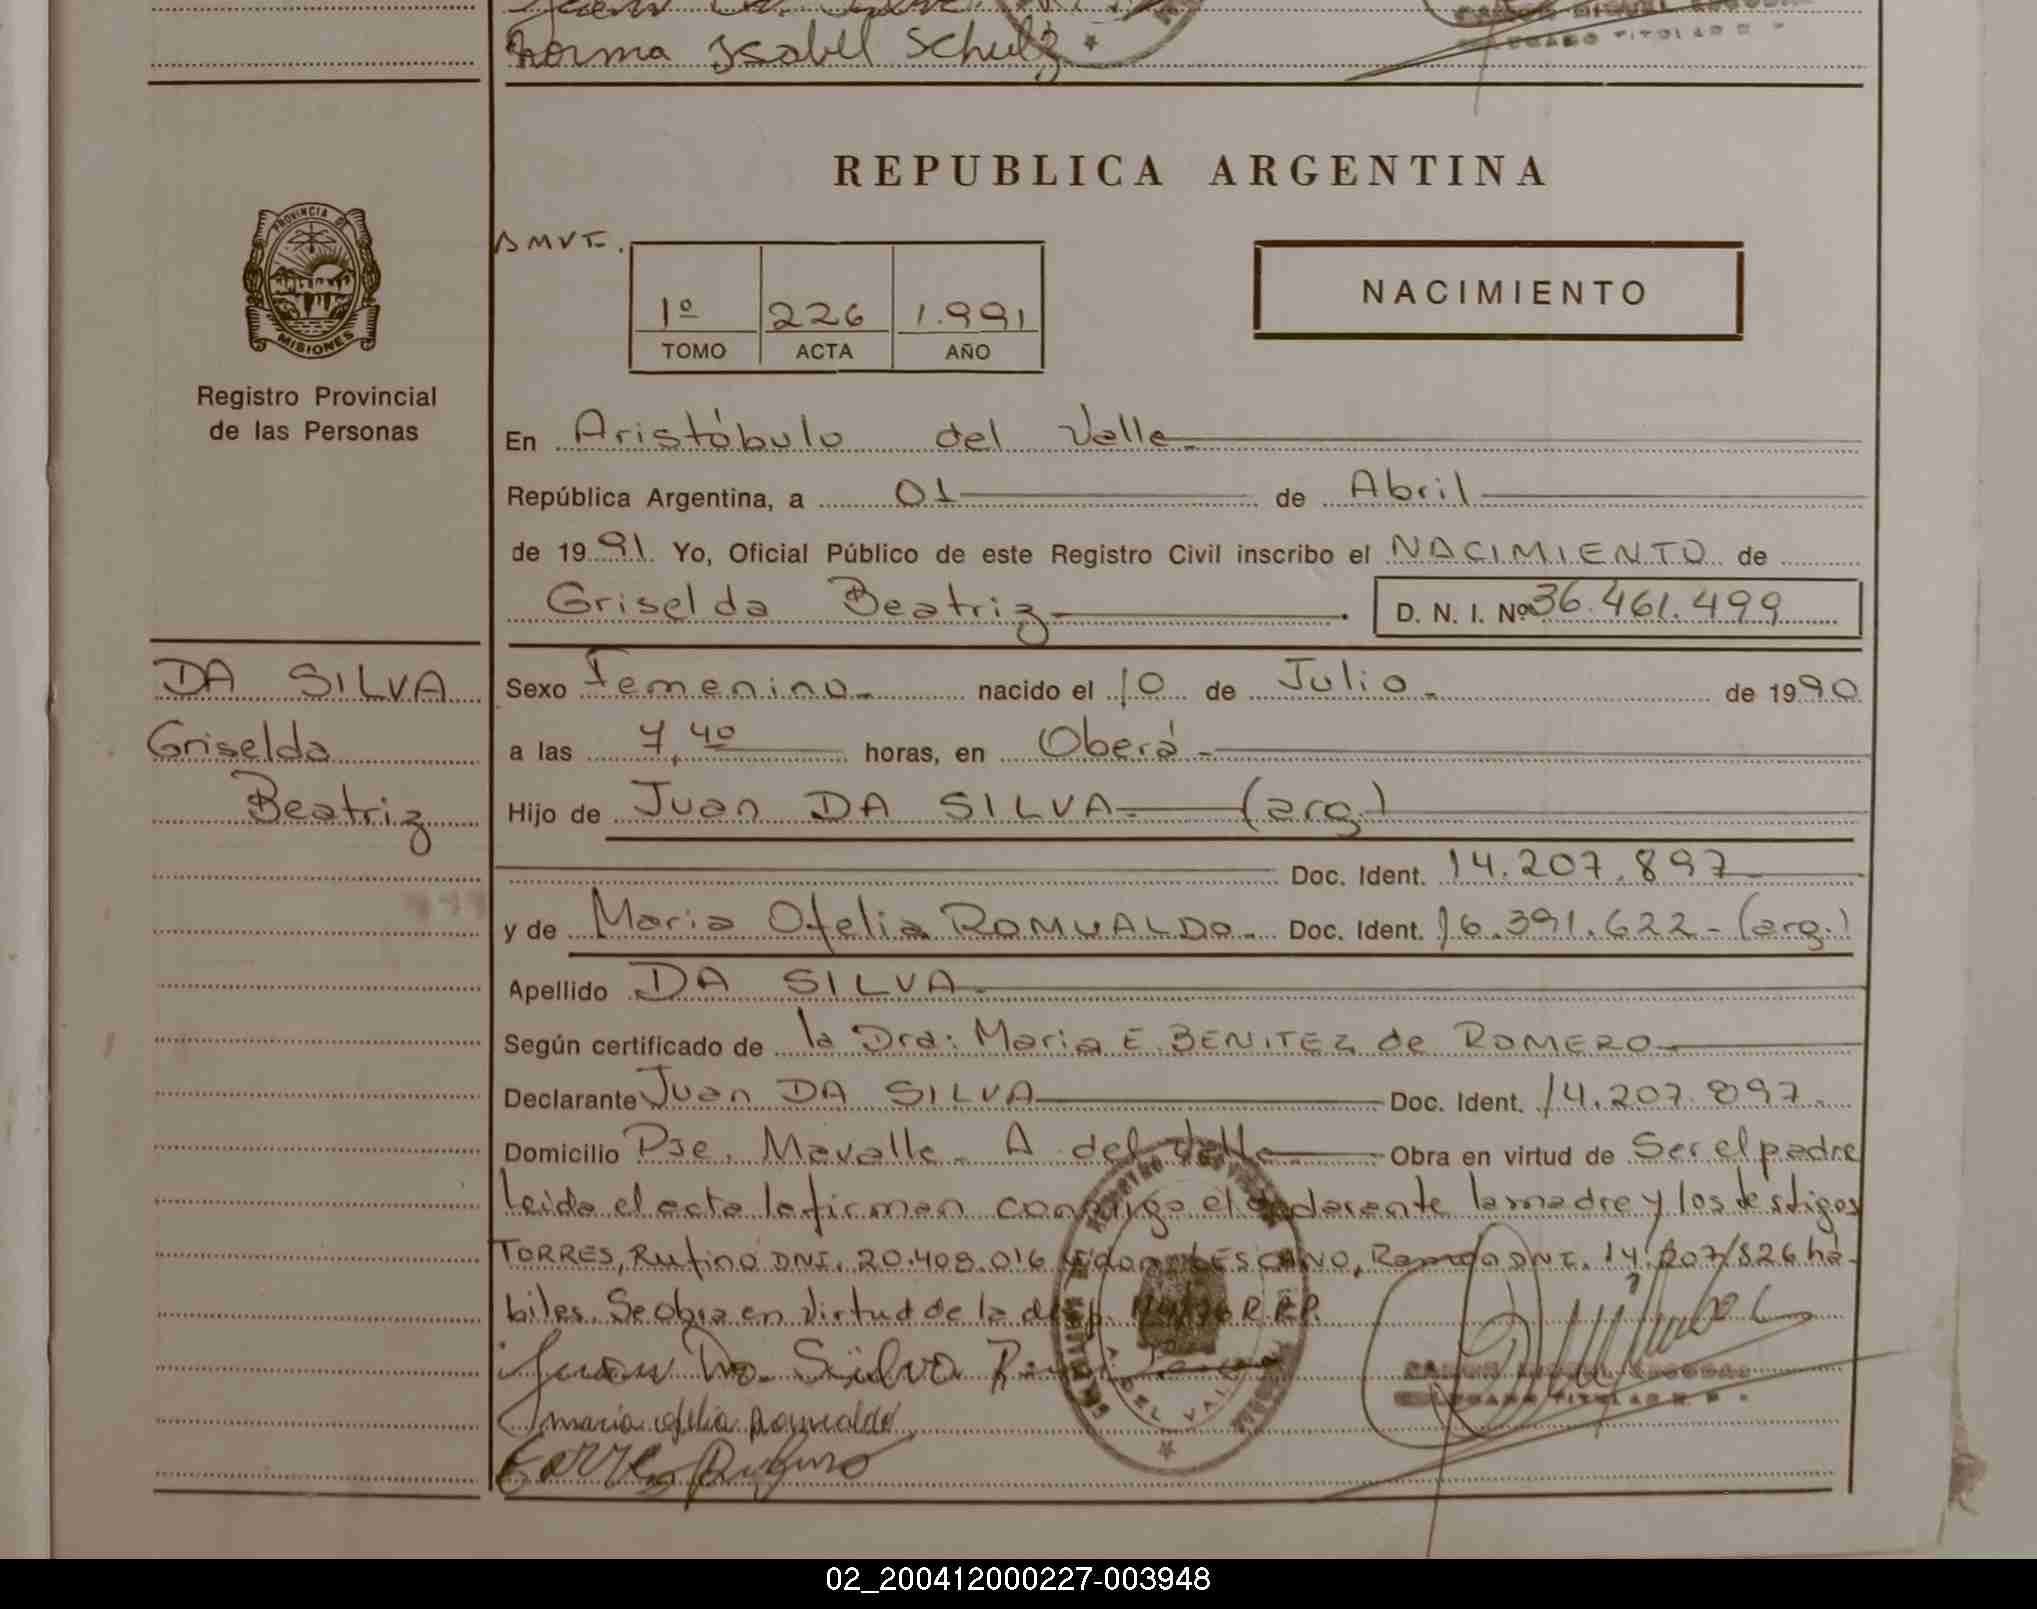 Norma Isabel Schulz
REPUBLICA ARGENTINA
PROVINCIA DE
MISIONES
Registro Provincial
de las Personas
AMVT.
1º 226 1.991
TOMO ACTA AÑO
NACIMIENTO
En Aristóbulo del Valle
República Argentina, a 01 de Abril
de 1991. Yo, Oficial Público de este Registro Civil inscribo el NACIMIENTO de
Griselda Beatriz D. N. I. Nº 36.461.499
DA SILVA
Griselda
Beatriz
Sexo Femenino nacido el 10 de Julio de 1990
a las 7,40 horas, en Oberá
Hijo de Juan DA SILVA (arg.)
Doc. Ident. 14.207.897
y de Maria Ofelia ROMUALDO Doc. Ident. 16.391.622 - (arg.)
Apellido DA SILVA
Según certificado de la Dra: Maria E. BENITEZ de ROMERO
Declarante Juan DA SILVA Doc. Ident. 14.207.897
Domicilio Pje. Mavalle - A del Valle Obra en virtud de Ser el padre
leida el acta la firman conmigo el declarante la madre y los testigos
TORRES, Rufino DNI. 20.408.016 LESCANO, Ramon DNI. 14.207.826 há-
biles. Se obra en virtud de la disp. R.P.P.
Juan Da Silva
maria ofelia Romualdo
Torres Rufino
02_200412000227-003948